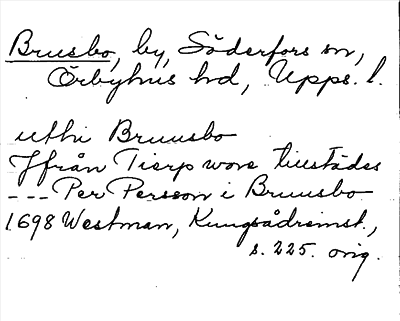 Brusbo, by, Söderfors sn,
Örbyhus hd, Upps. l.
uthi Bruusbo
Jfrån Tierp wore tillstädes
--- Per Persson i Bruusbo
1698 Westman, Kungsådremst.,
s. 225. orig.